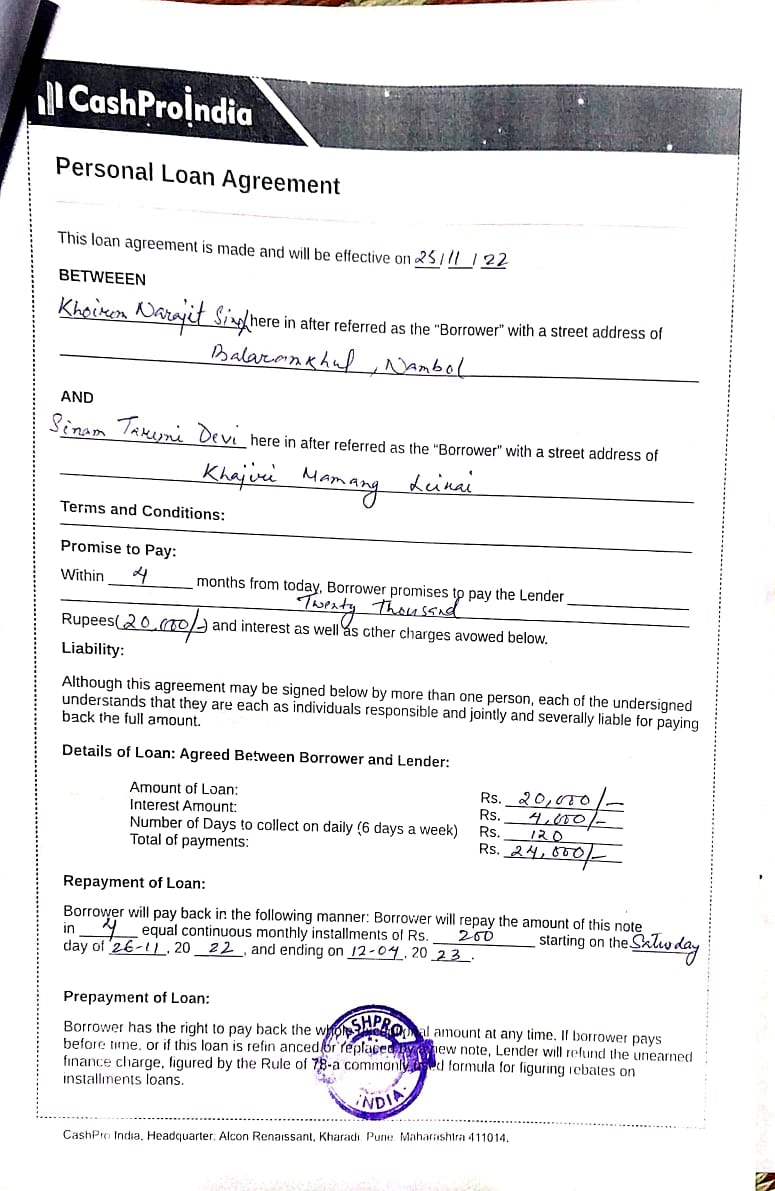 CashProIndia
Personal Loan Agreement
This loan agreement is made and will be effective on 25/11/22
BETWEEEN
Khoirom Narajit Singh here in after referred as the “Borrower” with a street address of
Balaramkhul, Nambol
AND
Sinam Taruni Devi here in after referred as the “Borrower” with a street address of
Khajiri Mamang Leikai
Terms and Conditions:
Promise to Pay:
Within 4 months from today, Borrower promises to pay the Lender
Twenty Thousand
Rupees(20,000/-) and interest as well as other charges avowed below.
Liability:
Although this agreement may be signed below by more than one person, each of the undersigned
understands that they are each as individuals responsible and jointly and severally liable for paying
back the full amount.
Details of Loan: Agreed Between Borrower and Lender:
Amount of Loan: Rs. 20,000/-
Interest Amount: Rs. 4,000/-
Number of Days to collect on daily (6 days a week) Rs. 120
Total of payments: Rs. 24,000/-
Repayment of Loan:
Borrower will pay back in the following manner: Borrower will repay the amount of this note
in 4 equal continuous monthly installments of Rs. 200 starting on the Saturday
day of 26-11, 20 22, and ending on 12-04, 20 23.
Prepayment of Loan:
Borrower has the right to pay back the whole amount at any time. If borrower pays
before time, or if this loan is refin anced or replaced by a new note, Lender will refund the unearned
finance charge, figured by the Rule of 78-a commonly used formula for figuring rebates on
installments loans.
CASHPRO
INDIA
CashPro India, Headquarter: Alcon Renaissant, Kharadi, Pune, Maharashtra 411014.